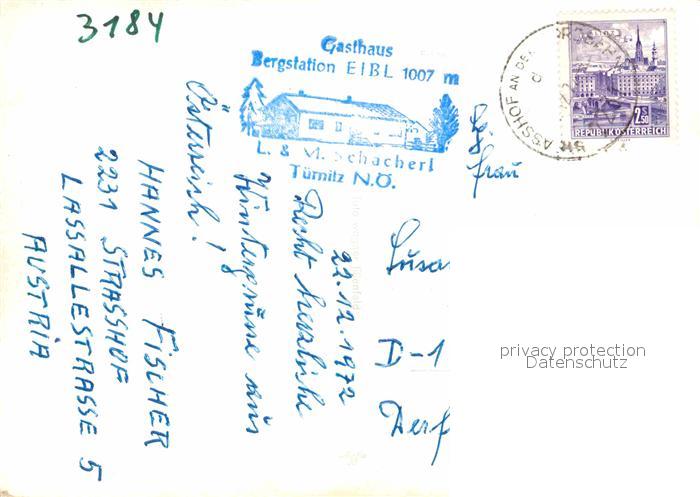 3184
Gasthaus
Bergstation EIBL 1007 m
L. & M. Schacherl
Türnitz N.Ö.
2.50
REPUBLIK ÖSTERREICH
ASSHOF AN DER
22.12.1972
Recht herzliche
Wintergrüsse aus
Österreich!
HANNES FISCHER
2231 STRASSHOF
LASSALLESTRASSE 5
AUSTRIA
Frau
Lusa
D-1
privacy protection
Datenschutz